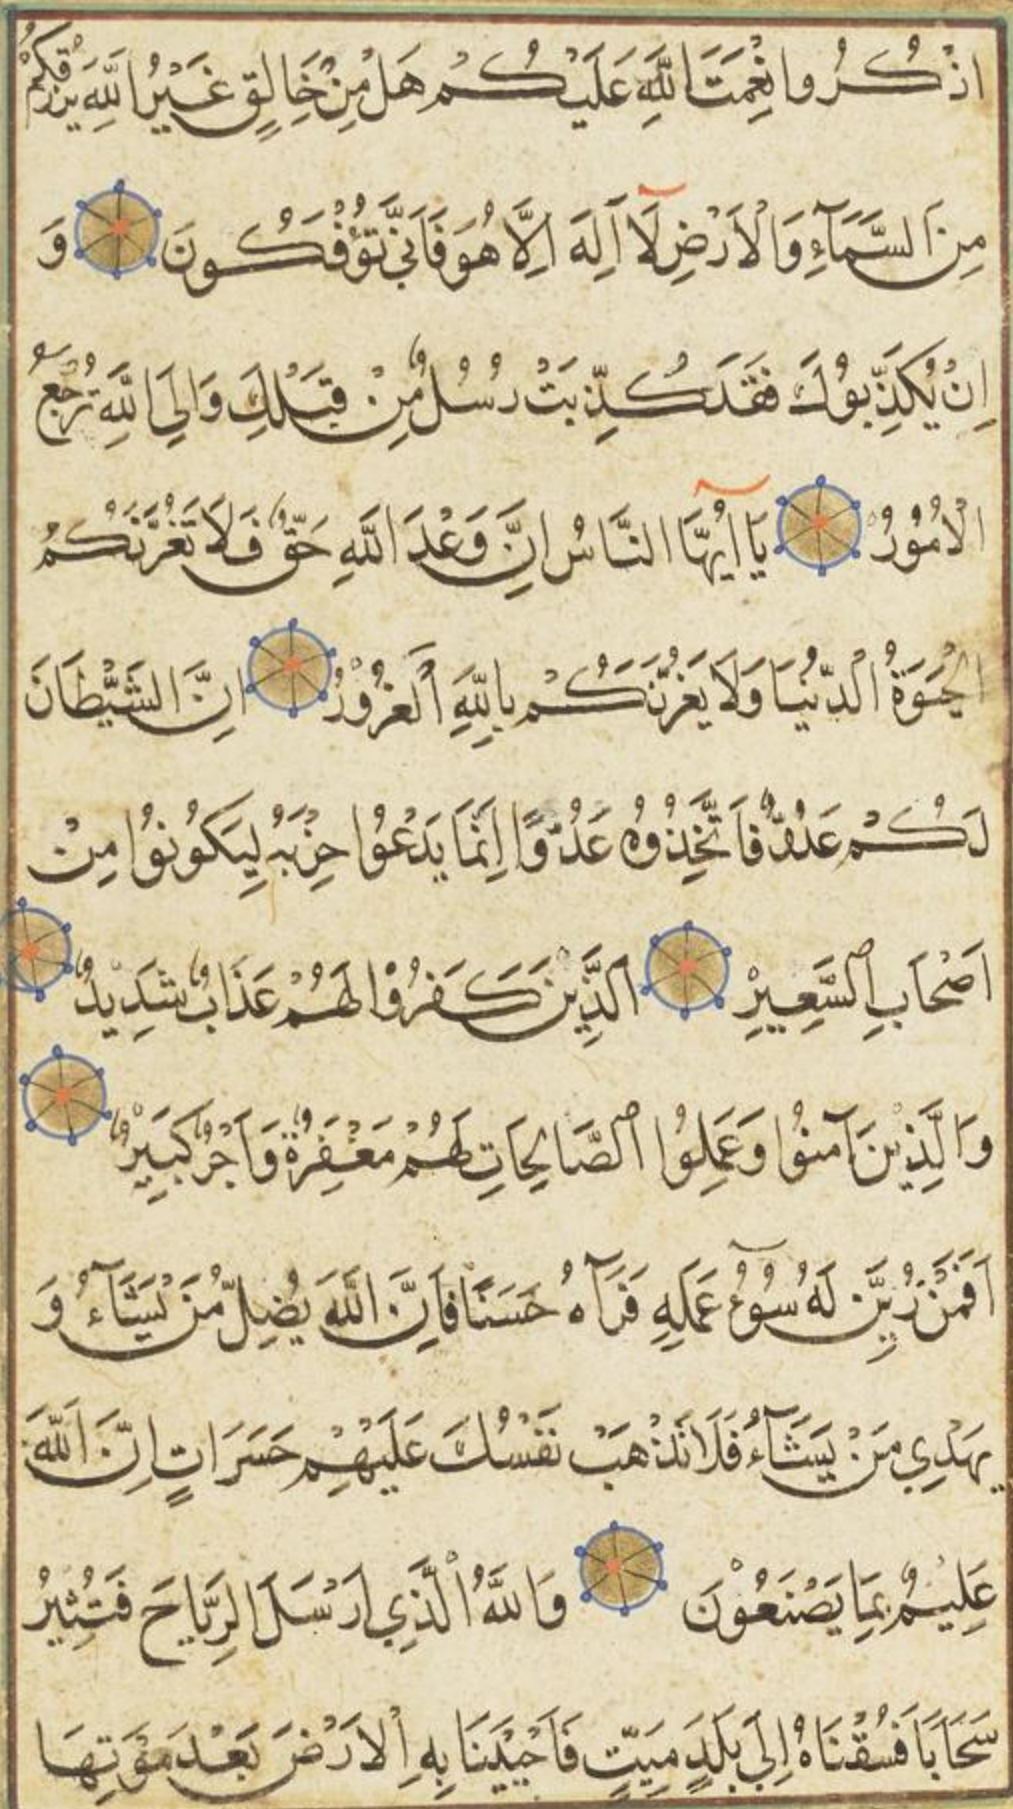 اذْكُرُوا نِعْمَتَ اللَّهِ عَلَيْكُمْ هَلْ مِنْ خَالِقٍ غَيْرُ اللَّهِ يَرْزُقُكُمْ
مِنَ السَّمَآءِ وَالْاَرْضِ لَآ اِلَهَ اِلَّا هُوَ فَاَنَّى تُؤْفَكُونَ وَ
اِنْ يُكَذِّبُوكَ فَقَدْ كُذِّبَتْ رُسُلٌ مِنْ قَبْلِكَ وَاِلَى اللَّهِ تُرْجَعُ
الْاُمُورُ يَآ اَيُّهَا النَّاسُ اِنَّ وَعْدَ اللَّهِ حَقٌّ فَلَا تَغُرَّنَّكُمُ
الْحَيَوةُ الدُّنْيَا وَلَا يَغُرَّنَّكُمْ بِاللَّهِ الْغَرُورُ اِنَّ الشَّيْطَانَ
لَكُمْ عَدُوٌّ فَاتَّخِذُوهُ عَدُوًّا اِنَّمَا يَدْعُوا حِزْبَهُ لِيَكُونُوا مِنْ
اَصْحَابِ السَّعِيرِ اَلَّذِينَ كَفَرُوا لَهُمْ عَذَابٌ شَدِيدٌ
وَالَّذِينَ آمَنُوا وَعَمِلُوا الصَّالِحَاتِ لَهُمْ مَغْفِرَةٌ وَاَجْرٌ كَبِيرٌ
اَفَمَنْ زُيِّنَ لَهُ سُوۤءُ عَمَلِهِ فَرَآهُ حَسَنًا فَاِنَّ اللَّهَ يُضِلُّ مَنْ يَشَآءُ وَ
يَهْدِي مَنْ يَشَآءُ فَلَا تَذْهَبْ نَفْسُكَ عَلَيْهِمْ حَسَرَاتٍ اِنَّ اللَّهَ
عَلِيمٌ بِمَا يَصْنَعُونَ وَاللَّهُ الَّذِي اَرْسَلَ الرِّيَاحَ فَتُثِيرُ
سَحَابًا فَسُقْنَاهُ اِلَى بَلَدٍ مَيِّتٍ فَاَحْيَيْنَا بِهِ الْاَرْضَ بَعْدَ مَوْتِهَا